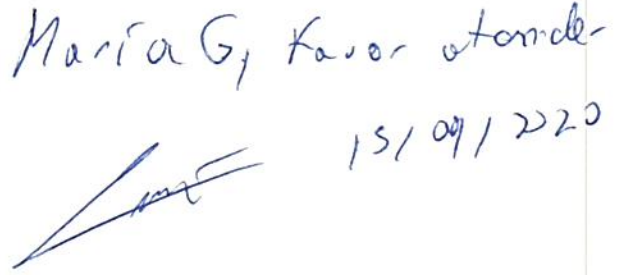 María G, Favor atender
15/09/2020